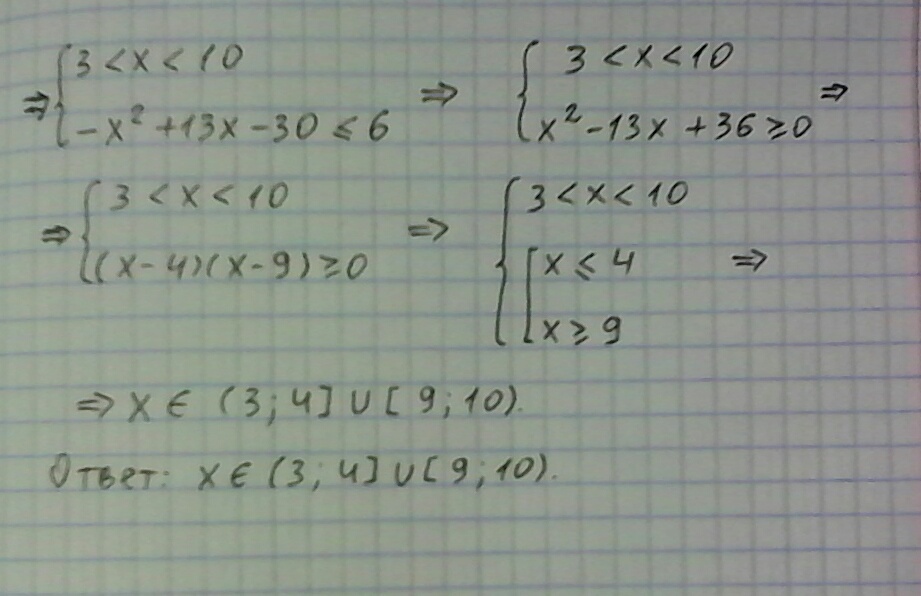 ⇒ { 3 < x < 10
-x² + 13x - 30 ≤ 6 ⇒
{ 3 < x < 10
x² - 13x + 36 ≥ 0 ⇒
⇒ { 3 < x < 10
(x-4)(x-9) ≥ 0 ⇒
{ 3 < x < 10
[ x ≤ 4 ⇒
x ≥ 9
⇒ x ∈ (3; 4] ∪ [9; 10).
Ответ: x ∈ (3; 4] ∪ [9; 10).